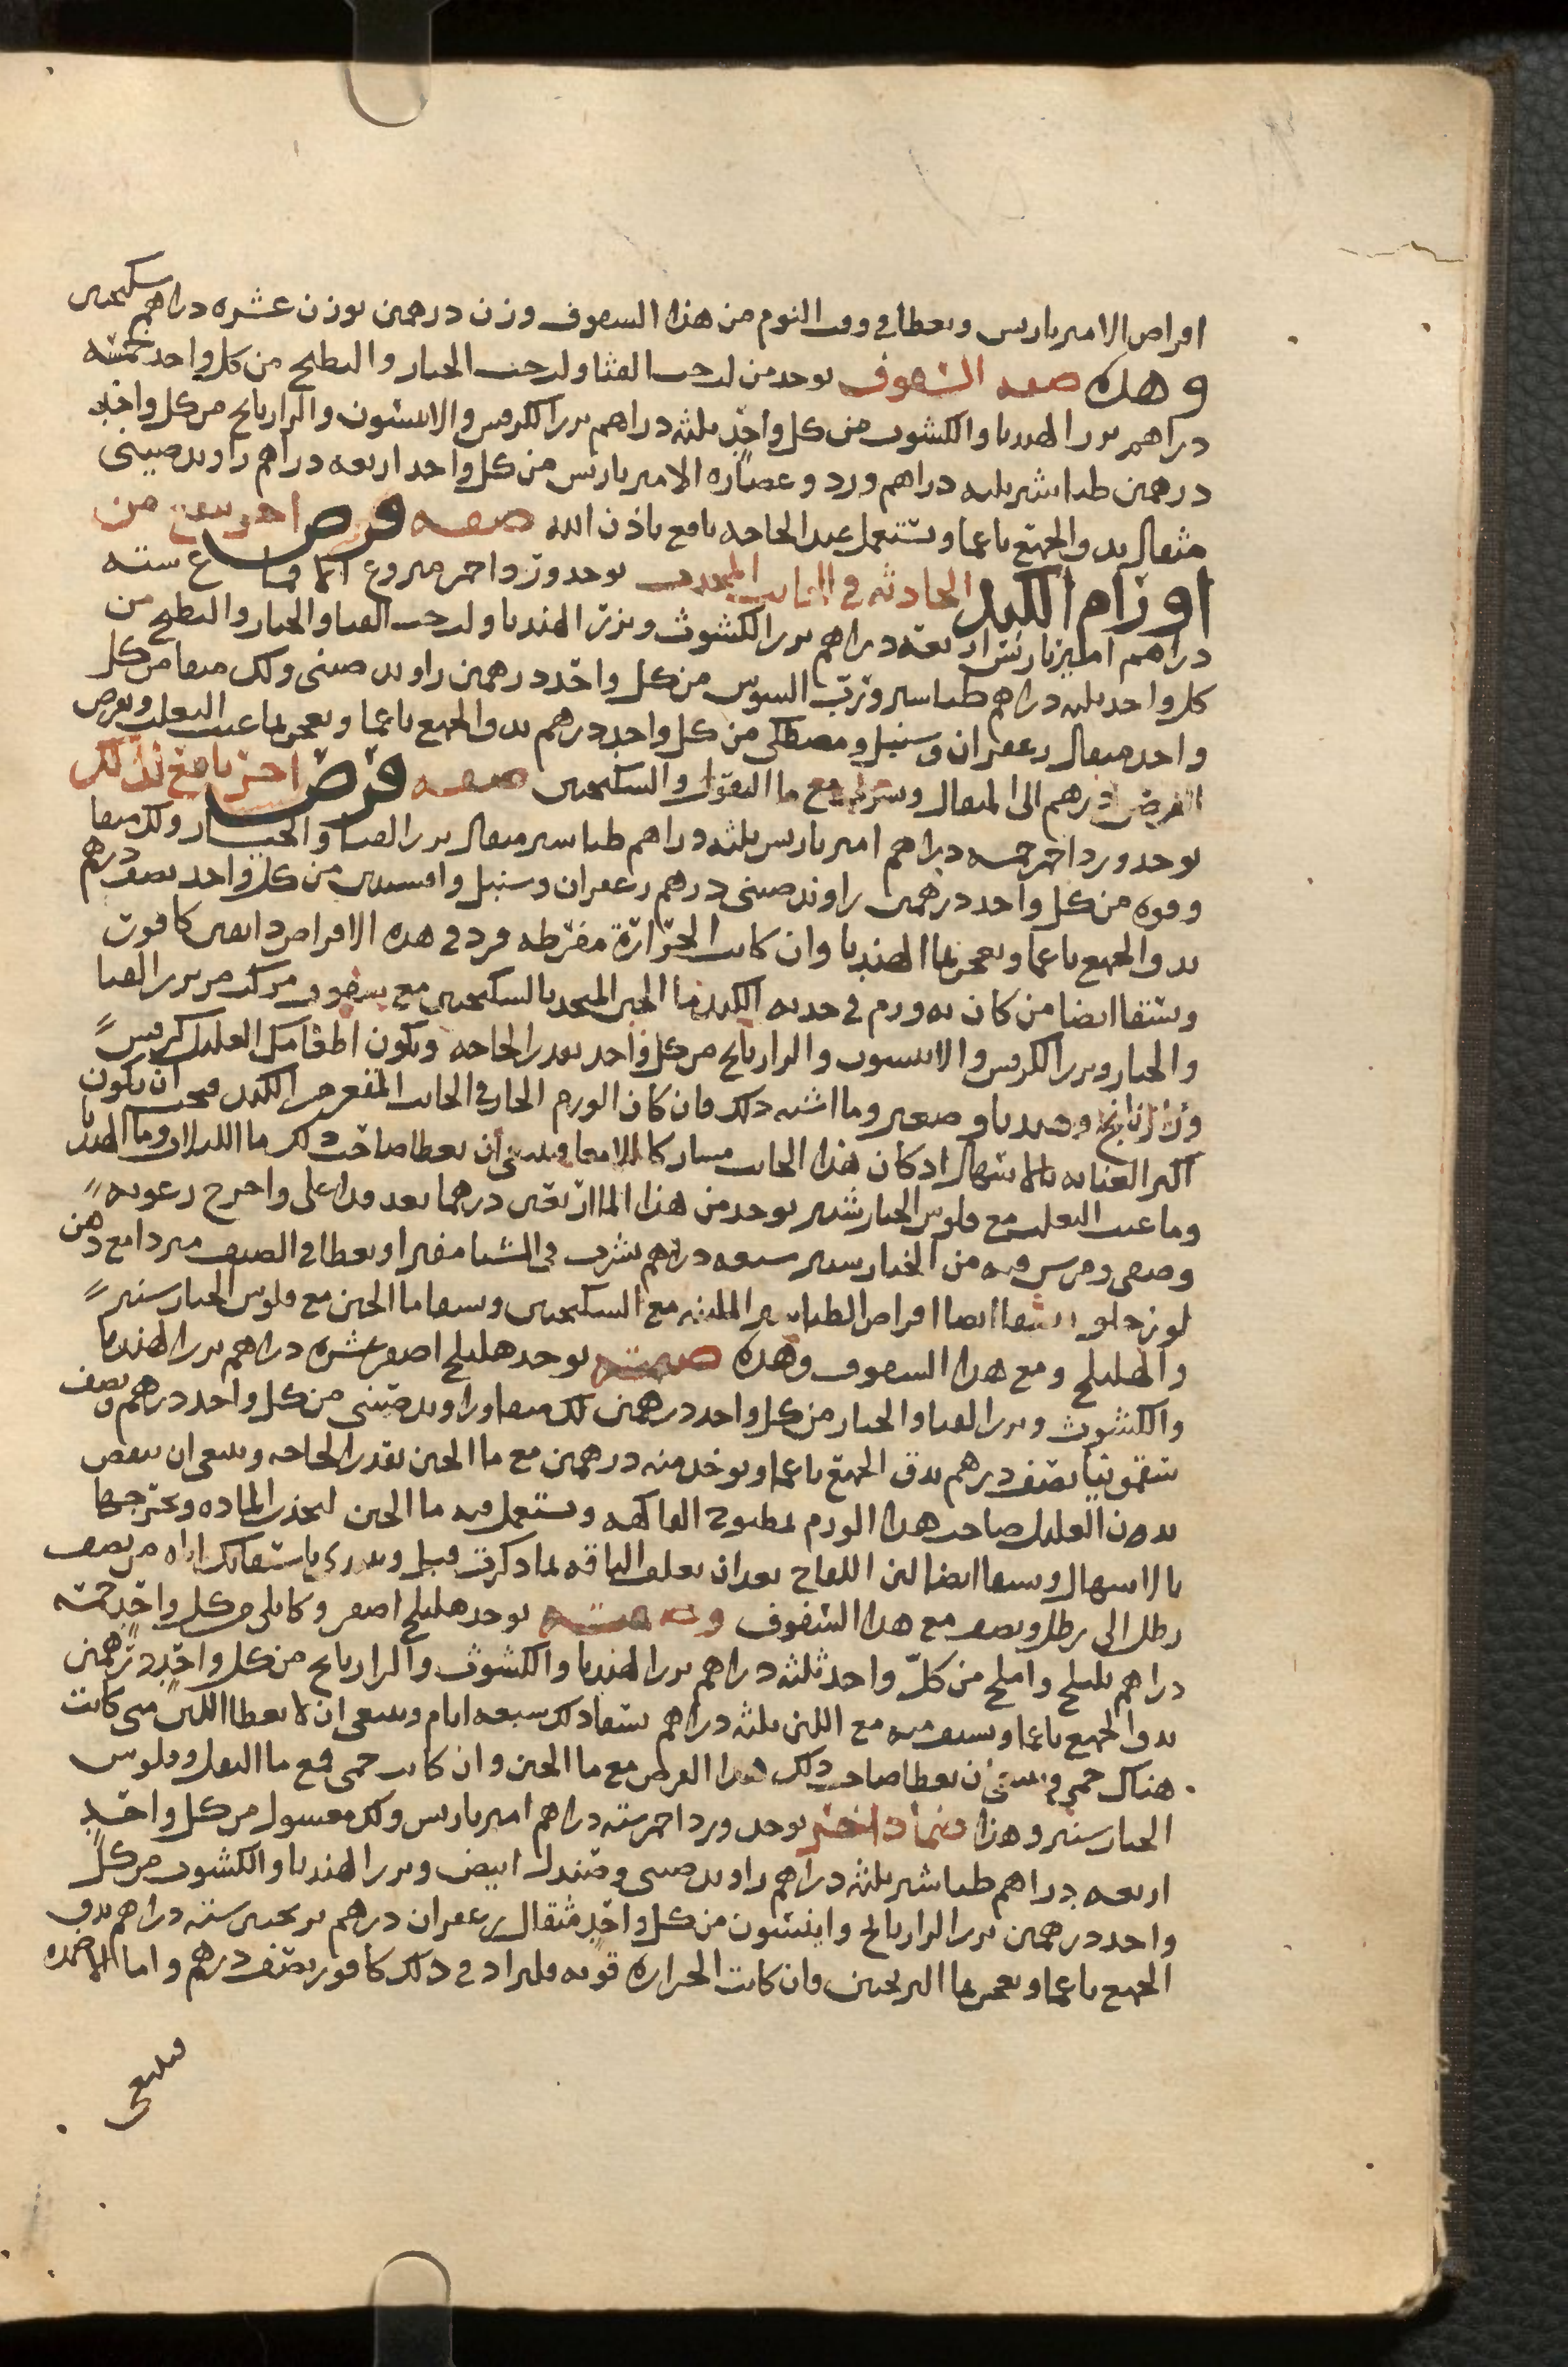 اقراص الامير باريس ويعطا في وقت النوم من هذا السفوف وزن درهمين بوزن عشره دراهم سكنجبين
وهذه صفه السفوف يوخد من لب حب القثا ولب حب الخيار والبطيخ من كل واحد خمسه
دراهم بزر الهندبا والكشوث من كل واحد ثلثه دراهم بزر الكرفس والانيسون والرازيانج من كل واحد
درهمين طباشير ثلثه دراهم ورد وعصاره الامير باريس من كل واحد اربعه دراهم راوند صيني
مثقال يدق الجميع ناعما ويستعمل عند الحاجه نافع باذن الله صفه قرص اخر ينفع من
اورام الكبد الحادثه في الجانب المحدب يوخد ورد احمر منزوع اقماع سته
دراهم امير باريس اربعه دراهم بزر الكشوث وبزر الهندبا ولب حب القثا والخيار والبطيخ من
كل واحد ثلثه دراهم طباشير ورب السوس من كل واحد درهمين راوند صيني ولك منقا من كل
واحد مثقال زعفران وسنبل ومصطكى من كل واحد درهم يدق الجميع ناعما ويعجن بما عنب الثعلب ويقرص
القرص درهم الى المثقال ويشرب مع ما البقول والسكنجبين صفه قرص اخر نافع لذلك
يوخد ورد احمر خمسه دراهم امير باريس ثلثه دراهم طباشير مثقال بزر القثا والخيار ولك منقا
وفوه من كل واحد درهمين راوند صيني درهم زعفران وسنبل وافسنتين من كل واحد نصف درهم
يدق الجميع ناعما ويعجن بما الهندبا وان كانت الحراره مفرطه فزد في هذه الاقراص دانقين كافور
ويسقا ايضا من كان به ورم في حدبه الكبد ما الجبن المتخد بالسكنجبين مع سفوف مركب من بزر القثا
والخيار وبزر الكرفس والانيسون والرازيانج من كل واحد بقدر الحاجه ويكون اطعامك العليل كرفس
ورازيانج وهندبا وصعتر وما اشبه ذلك فان كان الورم الحار في الجانب المقعر من الكبد فيجب ان يكون
اكثر العنايه بالاسهال اذ كان هذا الجانب مشاركا للامعا وينبغي ان يعطا صاحب ذلك ما اللبلاب وما الهندبا
وما عنب الثعلب مع فلوس الخيار شنبر يوخد من هذا الما اربعين درهما بعد قد اغلي واخرج رغوته
وصفي ومرس فيه من الخيار شنبر سبعه دراهم يشرب في الشتا مفترا ويعطا في الصيف مبردا مع دهن
لوز حلو ويسقا ايضا اقراص الطباشير الملينه مع السكنجبين ويسقا ما الجبن مع فلوس الخيار شنبر
والهليلج ومع هذا السفوف وهذه صفته يوخد هليلج اصفر عشره دراهم بزر الهندبا
والكشوث وبزر القثا والخيار من كل واحد درهمين لك منقا وراوند صيني من كل واحد درهم ونصف
سقمونيا نصف درهم يدق الجميع ناعما ويوخد منه درهمين مع ما الجبن بقدر الحاجه وينبغي ان ينقص
بدن العليل صاحب هذا الورم بمطبوخ الفاكهه ويستعمل فيه ما الجبن ليحدر الماده ويخرجها
بالاسهال ويسقا ايضا لبن اللقاح بعد ان يعلف الناقه بما ذكرت قبل ويبدي باسقايك اياه من نصف
رطل الى رطل ونصف مع هذا السفوف وصفته يوخد هليلج اصفر وكابلي من كل واحد خمسه
دراهم بليلج واملج من كل واحد ثلثه دراهم بزر الهندبا والكشوث والرازيانج من كل واحد درهمين
يدق الجميع ناعما ويسف منه مع اللبن ثلثه دراهم يسقا ذلك سبعه ايام وينبغي ان لا يعطا اللبن متى كانت
هناك حمى وينبغي ان يعطا صاحب ذلك هذا القرص مع ما الجبن وان كانت حمى فمع ما البقل وفلوس
الخيار شنبر وهذا ضماد اخر يوخد ورد احمر سته دراهم امير باريس ولك مغسول من كل واحد
اربعه دراهم طباشير ثلثه دراهم راوند صيني وصندل ابيض وبزر الهندبا والكشوث من كل
واحد درهمين بزر الرازيانج وانيسون من كل واحد مثقال زعفران درهم ترنجبين سته دراهم يدق
الجميع ناعما ويعجن بما الترنجبين وان كانت الحراره قويه فليزاد في ذلك كافور نصف درهم واما الاضمده
فينبغي